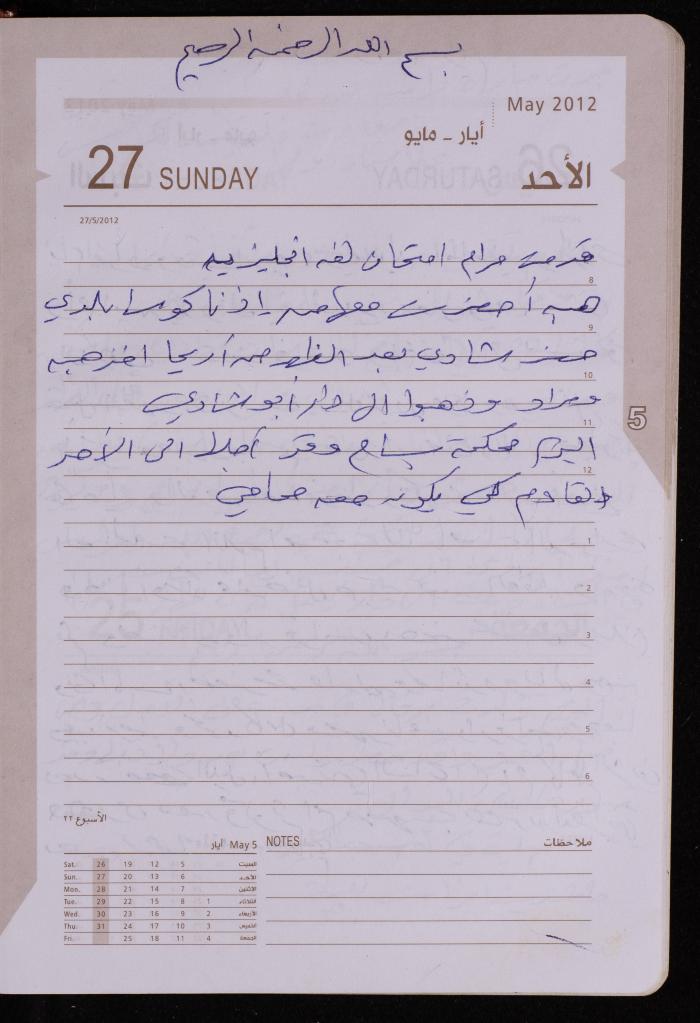 بسم الله الرحمن الرحيم
May 2012
أيار - مايو
27 SUNDAY الأحد
27/5/2012
قدمت مرام امتحان لغه انجليزيه
8
هبه أحضرت معها من يافا كوسا بلدي
9
حضر شادي بعد الظهر من أريحا اخذ هبه
10
ومراد وذهبوا الى دار أبو شادي
11
اليوم محكمة سامح وقد أجلت الى الأحد
12
القادم لكي يكون معه محامي
1
2
3
4
5
6
5
الأسبوع ٢٢
أيار May 5
Sat. 26 19 12 5 السبت
Sun. 27 20 13 6 الأحد
Mon. 28 21 14 7 الاثنين
Tue. 29 22 15 8 1 الثلاثاء
Wed. 30 23 16 9 2 الأربعاء
Thu. 31 24 17 10 3 الخميس
Fri. 25 18 11 4 الجمعة
NOTES ملاحظات